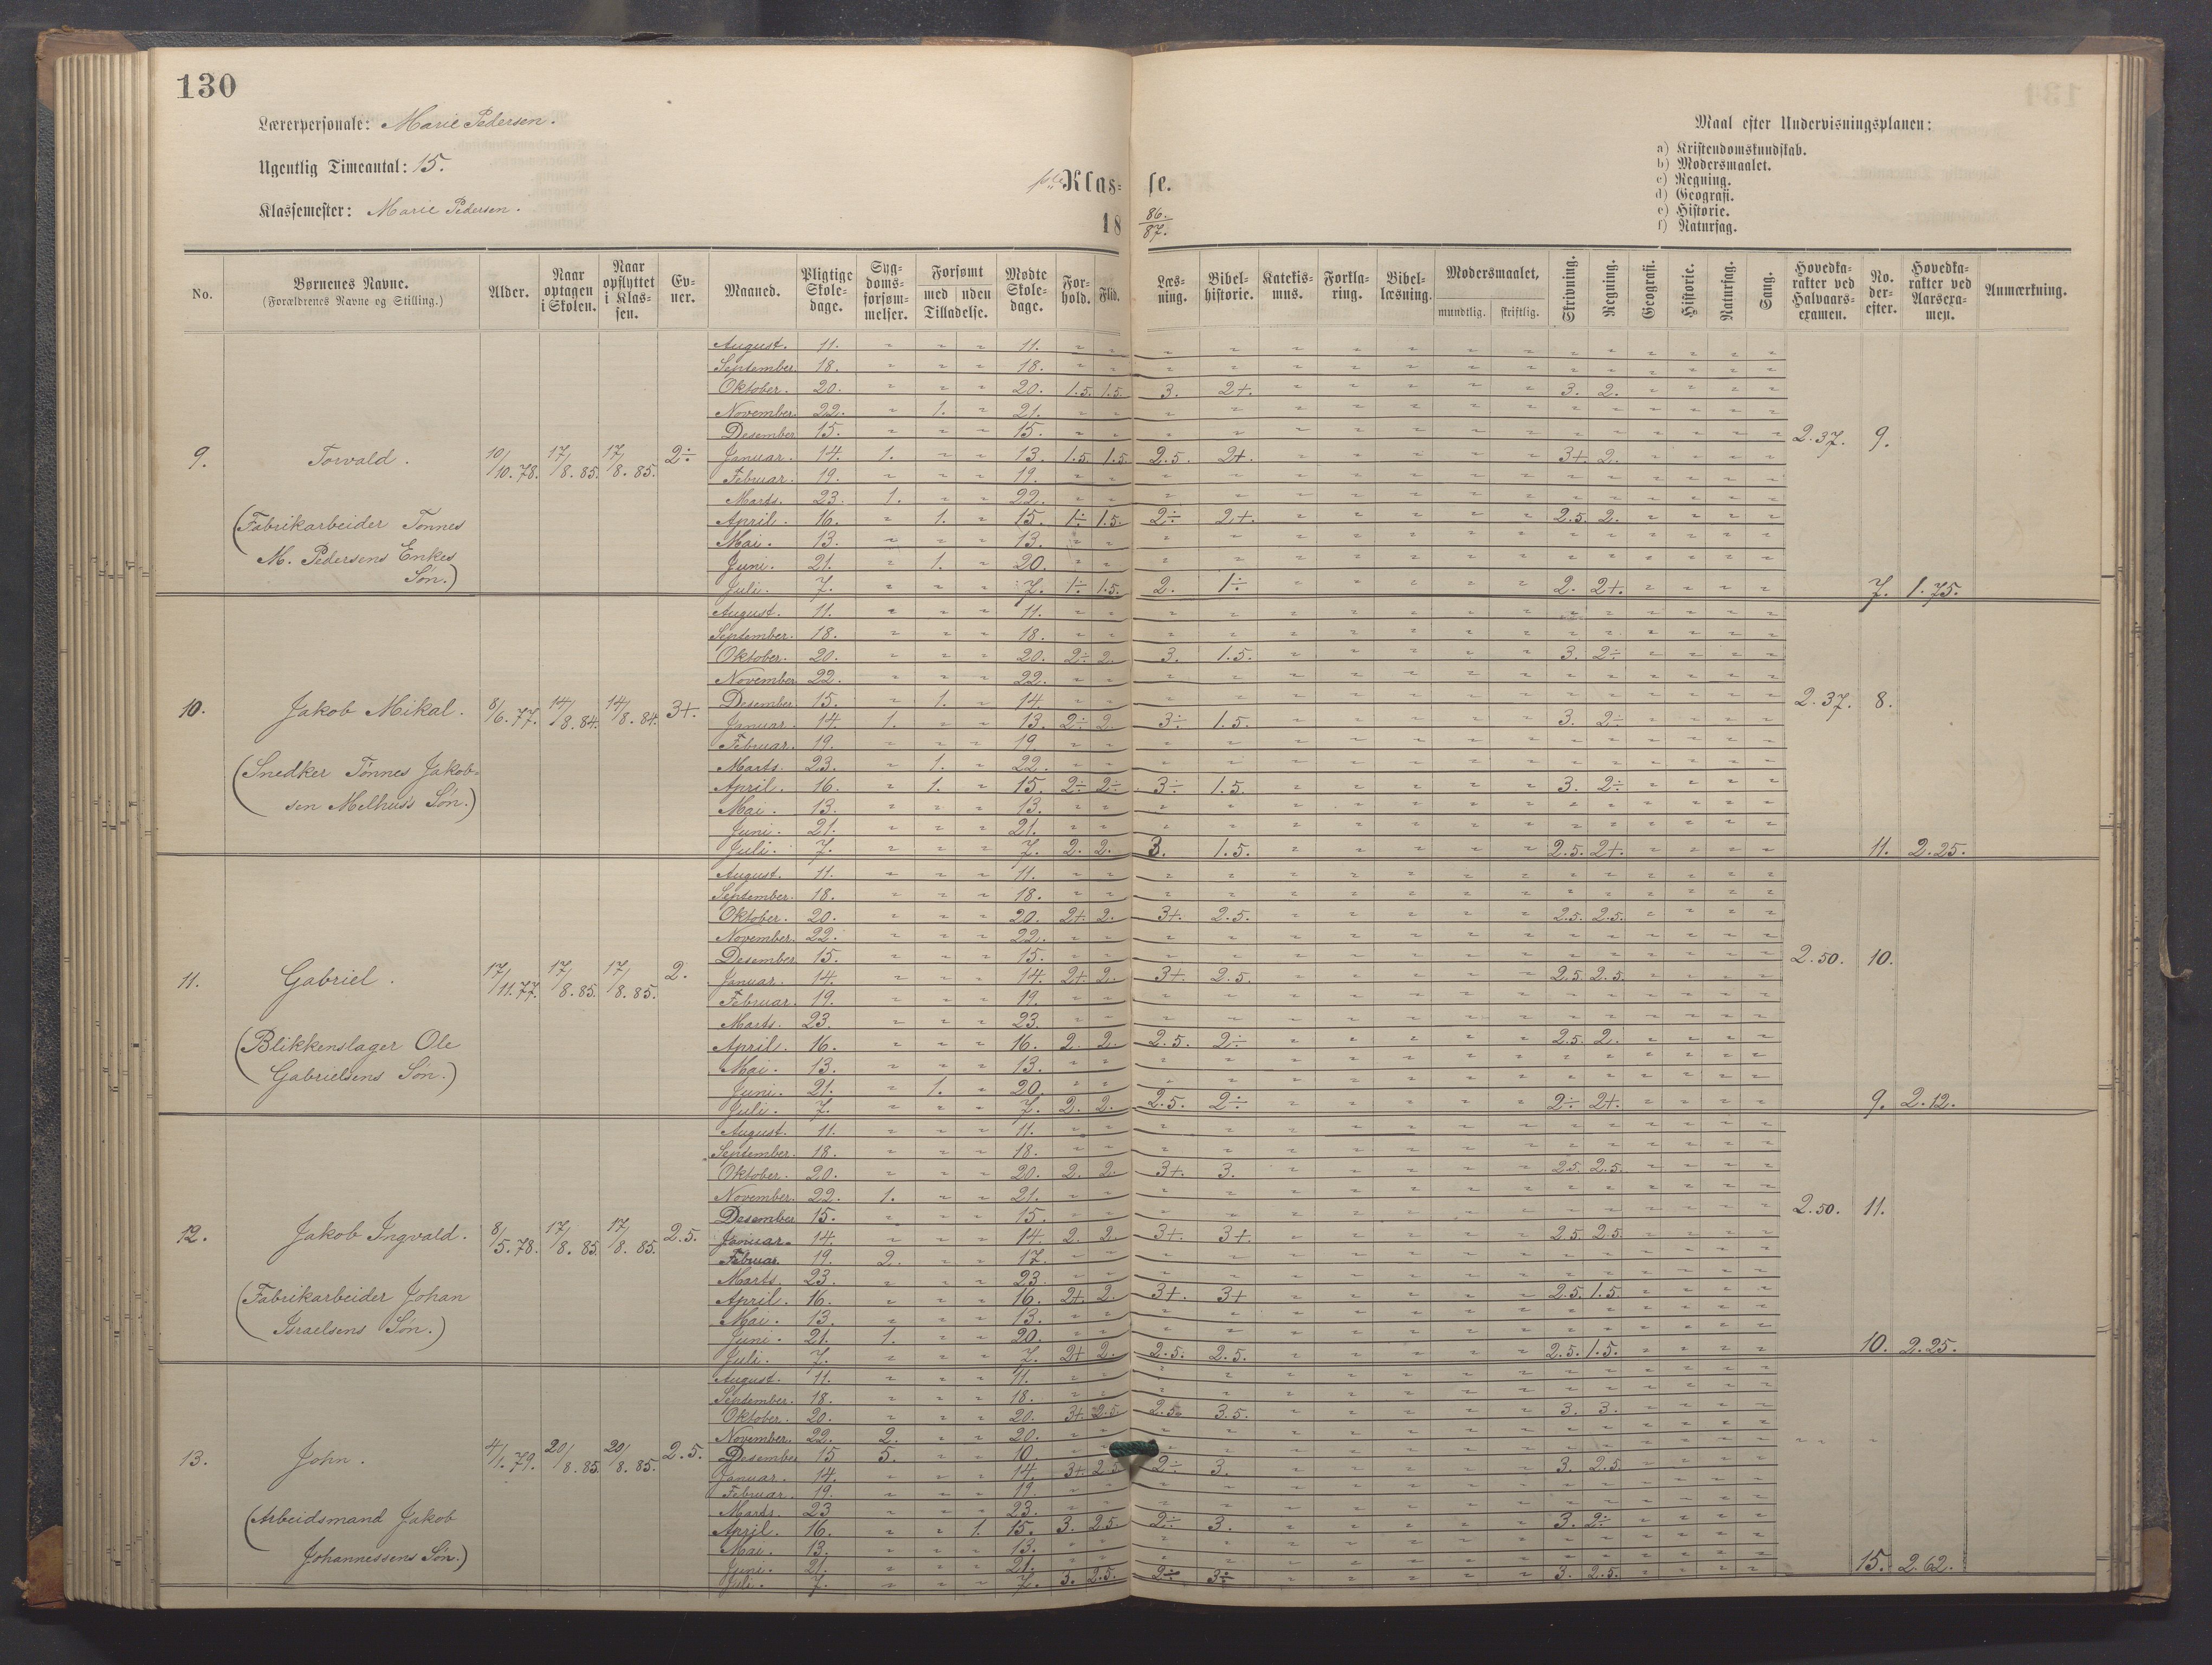 130
Lærerpersonale: Marie Pedersen.
Ugentlig Timeantal: 15.
Klassemester: Marie Pedersen.
1ste Klas= se.
18 86./87.
Maal efter Undervisningsplanen:
a) Kristendomskundskab.
b) Modersmaalet.
c) Regning.
d) Geografi.
e) Historie.
f) Naturfag.
No. | Børnenes Navne. (Forældrenes Navne og Stilling.) | Alder. | Naar optagen i Skolen. | Naar opflyttet i Klassen. | Evner. | Maaned. | Pligtige Skoledage. | Sygdomsforsømmelser. | Forsømt med Tilladelse. | uden Tilladelse. | Mødte Skoledage. | Forhold. | Flid. | Læsning. | Bibelhistorie. | Katekismus. | Forklaring. | Bibellæsning. | Modersmaalet, mundtlig. | skriftlig. | Skrivning. | Regning. | Geografi. | Historie. | Naturfag. | Sang. | Hovedkarakter ved Halvaarsexamen. | No. derefter. | Hovedkarakter ved Aarsexamen. | Anmærkning.
9. Torvald. 10/10.78. 17/8.85. 17/8.85. 2÷
(Fabrikarbeider Tønnes
M. Pedersens Enkes
Søn.)
August. 11. " " " 11. " "
September. 18. " " " 18. " "
Oktober. 20. " " " 20. 1.5. 1.5. 3. 2+. " " " " " 3. 2. " " " "
November. 22. " 1. " 21. " "
Desember 15. " " " 15. " "
2.37. 9.
Januar. 14. 1. " " 13. 1.5. 1.5. 2.5. 2+. " " " " " 3+. 2. " " " "
Februar. 19. " " " 19. " "
Marts. 23. 1. " " 22. " "
April. 16. " 1. " 15. 1÷ 1.5. 2÷ 2+. " " " " " 2.5. 2. " " " "
Mai. 13. " " " 13. " "
Juni. 21. " 1. " 20. " "
Juli. 7. " " " 7. 1÷ 1.5. 2. 1÷ " " " " " 2. 2+. " " " " 7. 1.75.
10. Jakob Mikal. 8/6.77. 14/8.84. 14/8.84. 3+.
(Snedker Tønnes Jakob=
sen Melhus's Søn.)
August. 11. " " " 11. " "
September. 18. " " " 18. " "
Oktober. 20. " " " 20. 2÷ 2. 3. 1.5. " " " " " 3. 2÷ " " " "
November 22. " " " 22. " "
Desember. 15. " 1. " 14. " "
2.37. 8.
Januar. 14 1. " " 13. 2÷ 2. 3÷ 1.5. " " " " " 3. 2÷ " " " "
Februar. 19. " " " 19. " "
Marts. 23. " 1. " 22. " "
April. 16. " 1. " 15. 2÷ 2÷ 3÷ 1.5. " " " " " 3. 2÷ " " " "
Mai. 13. " " " 13. " "
Juni. 21. " " " 21. " "
Juli. 7. " " " 7. 2. 2. 3. 1.5. " " " " " 2.5. 2+. " " " " 11. 2.25.
11. Gabriel. 17/11.77. 17/8.85. 17/8.85. 2.
(Blikkenslager Ole
Gabrielsens Søn.)
August. 11. " " " 11. " "
September. 18. " " " 18. " "
Oktober. 20. " " " 20. 2+. 2. 3+. 2.5. " " " " " 2.5. 2.5. " " " "
November. 22. " " " 22. " "
Desember 15. " " " 15. " "
2.50. 10.
Januar. 14. " " " 14. 2+ 2. 3+ 2.5. " " " " " 2.5 2.5. " " " "
Februar. 19. " " " 19. " "
Marts. 23. " " " 23. " "
April. 16. " " " 16. 2. 2. 2.5. 2÷ " " " " " 2.5. 2. " " " "
Mai. 13. " " " 13. " "
Juni. 21. " 1. " 20. " "
Juli. 7. " " " 7. 2. 2. 2.5. 2÷ " " " " " 2÷ 2+. " " " " 9. 2.12.
12. Jakob Ingvald. 8/5.78. 17/8.85. 17/8.85. 2.5.
(Fabrikarbeider Johan
Israelsens Søn.)
August. 11. " " " 11. " "
September. 18. " " " 18. " "
Oktober. 20. " " " 20. 2. 2. 3+. 3. " " " " " 2.5. 2.5. " " " "
November. 22. 1. " " 21. " "
Desember 15. " " " 15. " "
2.50. 11.
Januar. 14. " " " 14. 2. 2. 3+. 3+. " " " " " 2.5 2.5. " " " "
Februar. 19. 2. " " 17. " "
Marts. 23. " " " 23. " "
April. 16. " " " 16. 2+. 2. 3+. 3+ " " " " " 2.5. 1.5. " " " "
Mai. 13. " " " 13. " "
Juni. 21. 1. " " 20. " "
Juli. 7. " " " 7. 2+ 2. 2.5. 2.5. " " " " " 2.5. 1.5. " " " " 10. 2.25.
13. John. 4/1.79. 20/8.85. 20/8.85. 2.5.
(Arbeidsmand Jakob
Johannessens Søn.)
August. 11. " " " 11. " "
September. 18. " " " 18. " "
Oktober. 20. " " " 20. 3+. 2.5. 2.5. 3.5. " " " " " 3. 3. " " " "
November. 22. 2. " " 20. " "
Desember 15 5. " " 10. " "
Januar. 14. " " " 14. 3+. 2.5 2÷ 3. " " " " " 3. 2.5. " " " "
Februar. 19. " " " 19. " "
Marts. 23 " " " 23. " "
April. 16. " " 1. 15. 3. 2.5. 2÷ 3. " " " " " 3. 2÷ " " " "
Mai. 13. " " " 13. " "
Juni. 21. " " " 21. " "
Juli. 7. " " " 7. 3. 2.5. 2÷ 3÷ " " " " " 3. 2.5. " " " " 15. 2.62.